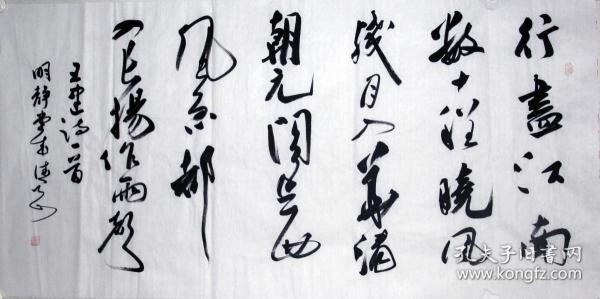 行盡江南
數十程曉風
殘月入華清
朝元閣上西
風急都
入長楊作雨聲
王建詩一首
明靜堂
孔夫子旧书网
www.kongfz.com